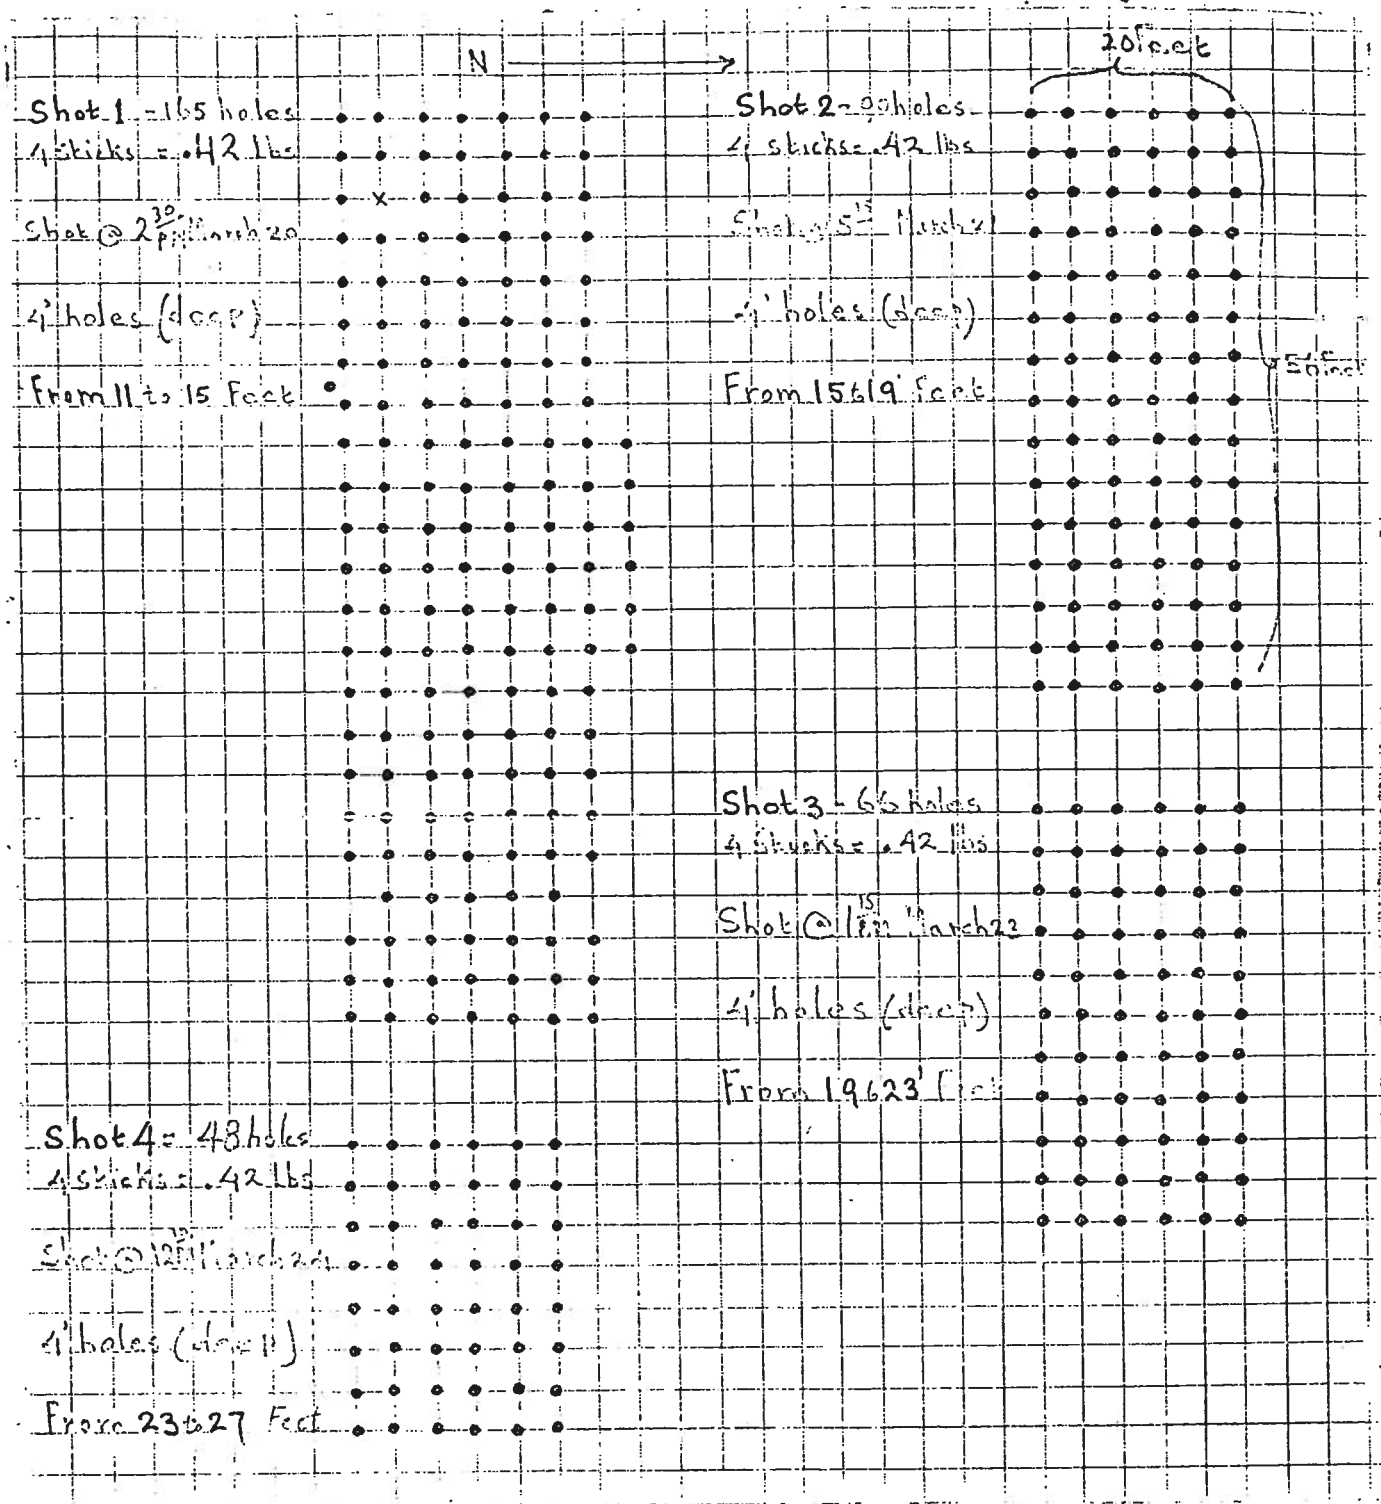 N
20 feet
Shot 1 - 165 holes
4 sticks = .42 lbs
Shot @ 2 30 pm March 20
4' holes (deep)
From 11 to 15 Feet
Shot 2 - 90 holes
4 sticks = .42 lbs
Shot @ 5 15 March 21
4' holes (deep)
From 15 to 19' feet
56 feet
Shot 3 - 66 holes
4 sticks = .42 lbs
Shot @ 1 15 pm March 23
4' holes (deep)
From 19 to 23' Feet
Shot 4 = 48 holes
4 sticks = .42 lbs
Shot @ 12 March 24
4' holes (deep)
From 23 to 27 Feet